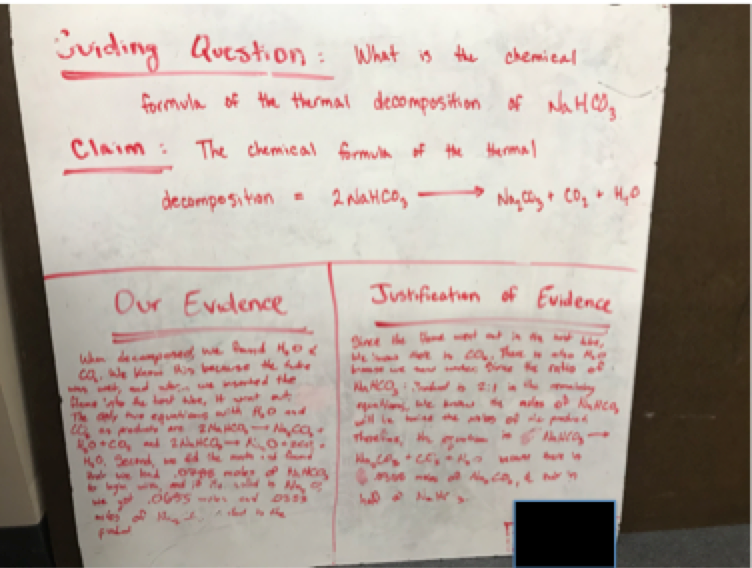 Guiding Question: What is the chemical
formula of the thermal decomposition of NaHCO₃
Claim: The chemical formula of the thermal
decomposition = 2NaHCO₃ ⟶ Na₂CO₃ + CO₂ + H₂O
Our Evidence
When decomposed, we found H₂O &
CO₂. We know this because the tube
was wet, and when we inserted the
flame into the test tube, it went out.
The only two equations with H₂O and
CO₂ as products are 2NaHCO₃ ⟶ Na₂CO₃ +
H₂O + CO₂ and 2NaHCO₃ ⟶
H₂O. Second, we did the math and found
that we had moles of NaHCO₃
to begin with, and if the solid is Na₂O,
we get .0655 moles and
moles of
product
Justification of Evidence
Since the flame went out in the test tube,
we know there is CO₂. There is also H₂O
because we saw water. Since the ratio of
NaHCO₃ : Product is 2:1 in the remaining
equations, we know the moles of NaHCO₃
will be twice the moles of the product
Therefore, the equation is NaHCO₃ ⟶
Na₂CO₃ + CO₂ + H₂O because there is
moles of Na₂CO₃, & that is
half of